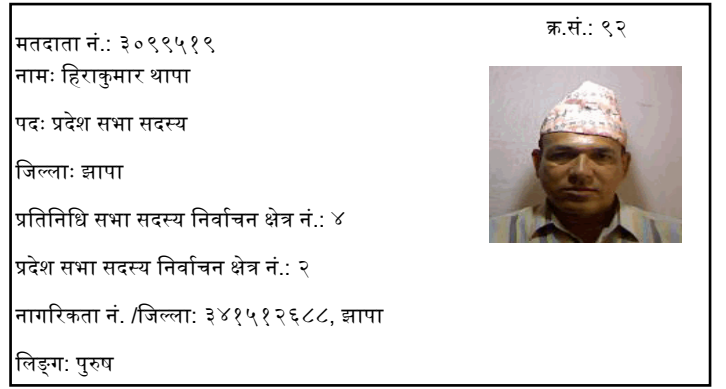 क्र.सं.: ९२
मतदाता नं.: ३०९९५१९
नामः हिराकुमार थापा
पदः प्रदेश सभा सदस्य
जिल्लाः झापा
प्रतिनिधि सभा सदस्य निर्वाचन क्षेत्र नं.: ४
प्रदेश सभा सदस्य निर्वाचन क्षेत्र नं.: २
नागरिकता नं. /जिल्ला: ३४१५१२६८८, झापा
लिङ्ग: पुरुष